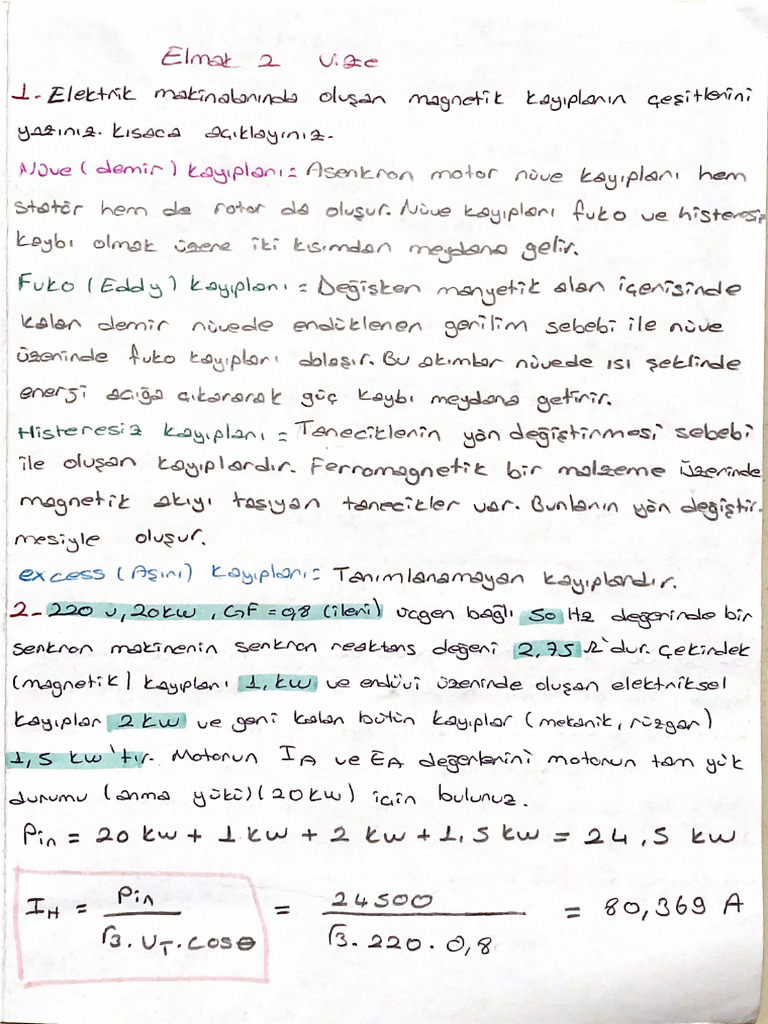 Elmak 2 vize
1. Elektrik makinalarında oluşan magnetik kayıpların çeşitlerini
yazınız. Kısaca açıklayınız.
Nüve (demir) kayıpları = Asenkron motor nüve kayıpları hem
statör hem de rotor da oluşur. Nüve kayıpları fuko ve histeresiz
kaybı olmak üzere iki kısımdan meydana gelir.
Fuko (Eddy) kayıpları = Değişken manyetik alan içerisinde
kalan demir nüvede endüklenen gerilim sebebi ile nüve
üzerinde fuko kayıpları dolaşır. Bu akımlar nüvede ısı şeklinde
enerji açığa çıkararak güç kaybı meydana getirir.
Histeresiz kayıpları = Taneciklerin yön değiştirmesi sebebi
ile oluşan kayıplardır. Ferromagnetik bir malzeme üzerinde
magnetik akıyı taşıyan tanecikler var. Bunların yön değiştir-
mesiyle oluşur.
excess (Aşırı) kayıpları = Tanımlanamayan kayıplardır.
2- 220 v, 20kw, GF = 0,8 (ileri) üçgen bağlı 50 Hz değerinde bir
senkron makinenin senkron reaktans değeri 2,75 Ω'dur. Çekirdek
(magnetik) kayıpları 1, kw ve endüvi üzerinde oluşan elektriksel
kayıplar 2 kw ve geri kalan bütün kayıplar (mekanik, rüzgar)
1,5 kw'tır. Motorun IA ve EA değerlerini motorun tam yük
durumu (anma yükü) (20kw) için bulunuz.
Pin = 20 kw + 1 kw + 2 kw + 1,5 kw = 24,5 kw
IH = Pin / √3 . UT . cosθ = 24500 / √3 . 220 . 0,8 = 80,369 A